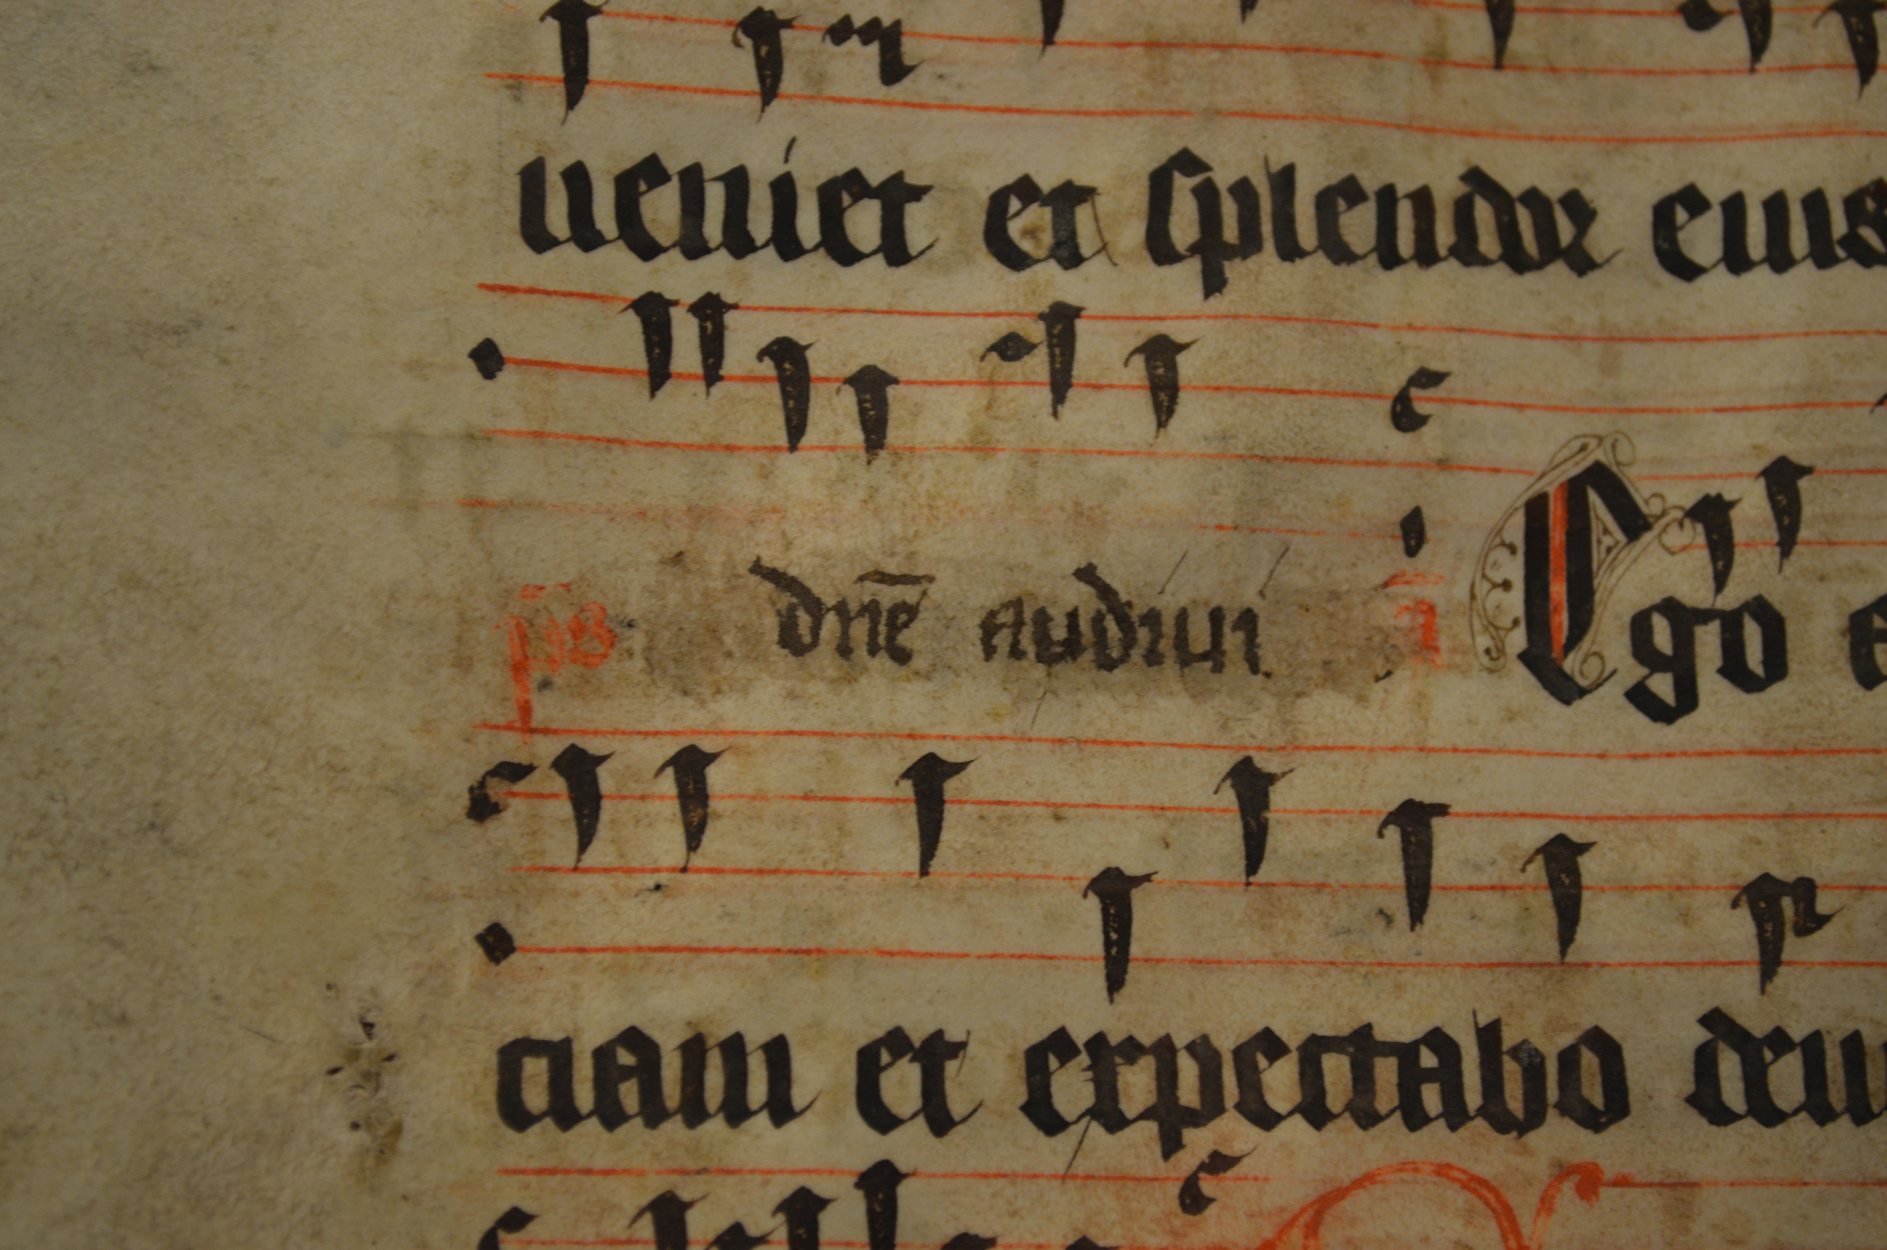 ueniet et splendor eius
ps dn̄e audiui a̅ Ego e
ciam et expectabo deum